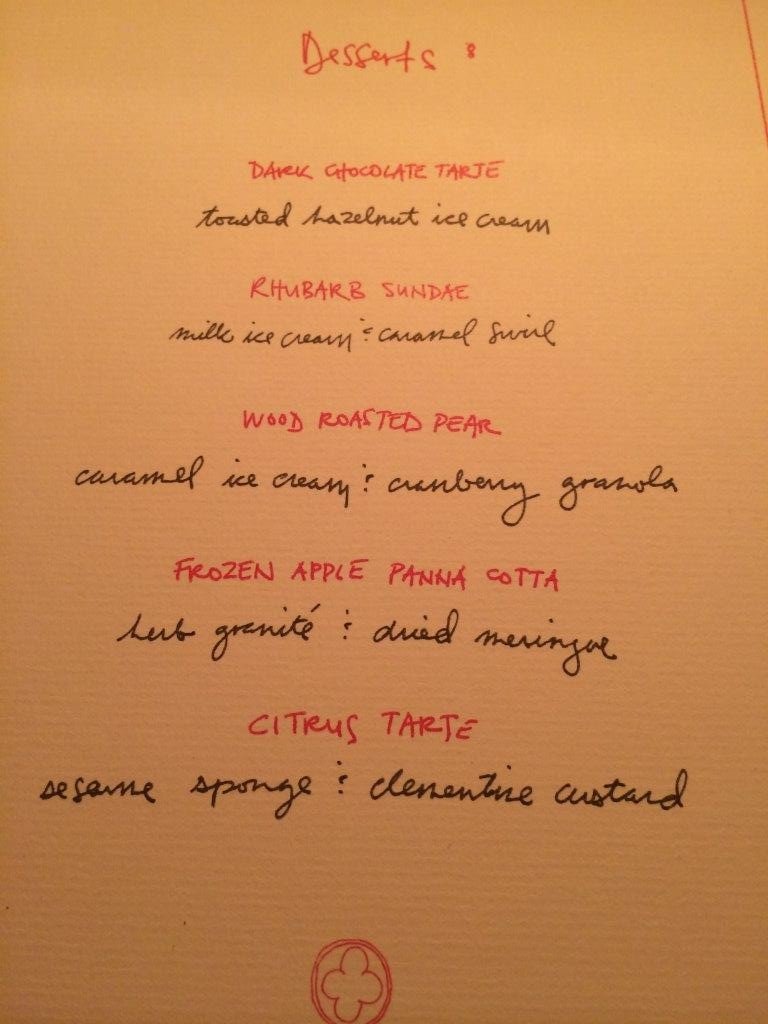 Desserts :
DARK CHOCOLATE TARTE
toasted hazelnut ice cream
RHUBARB SUNDAE
milk ice cream & caramel swirl
WOOD ROASTED PEAR
caramel ice cream & cranberry granola
FROZEN APPLE PANNA COTTA
herb granité & dried meringue
CITRUS TARTE
sesame sponge & clementine custard